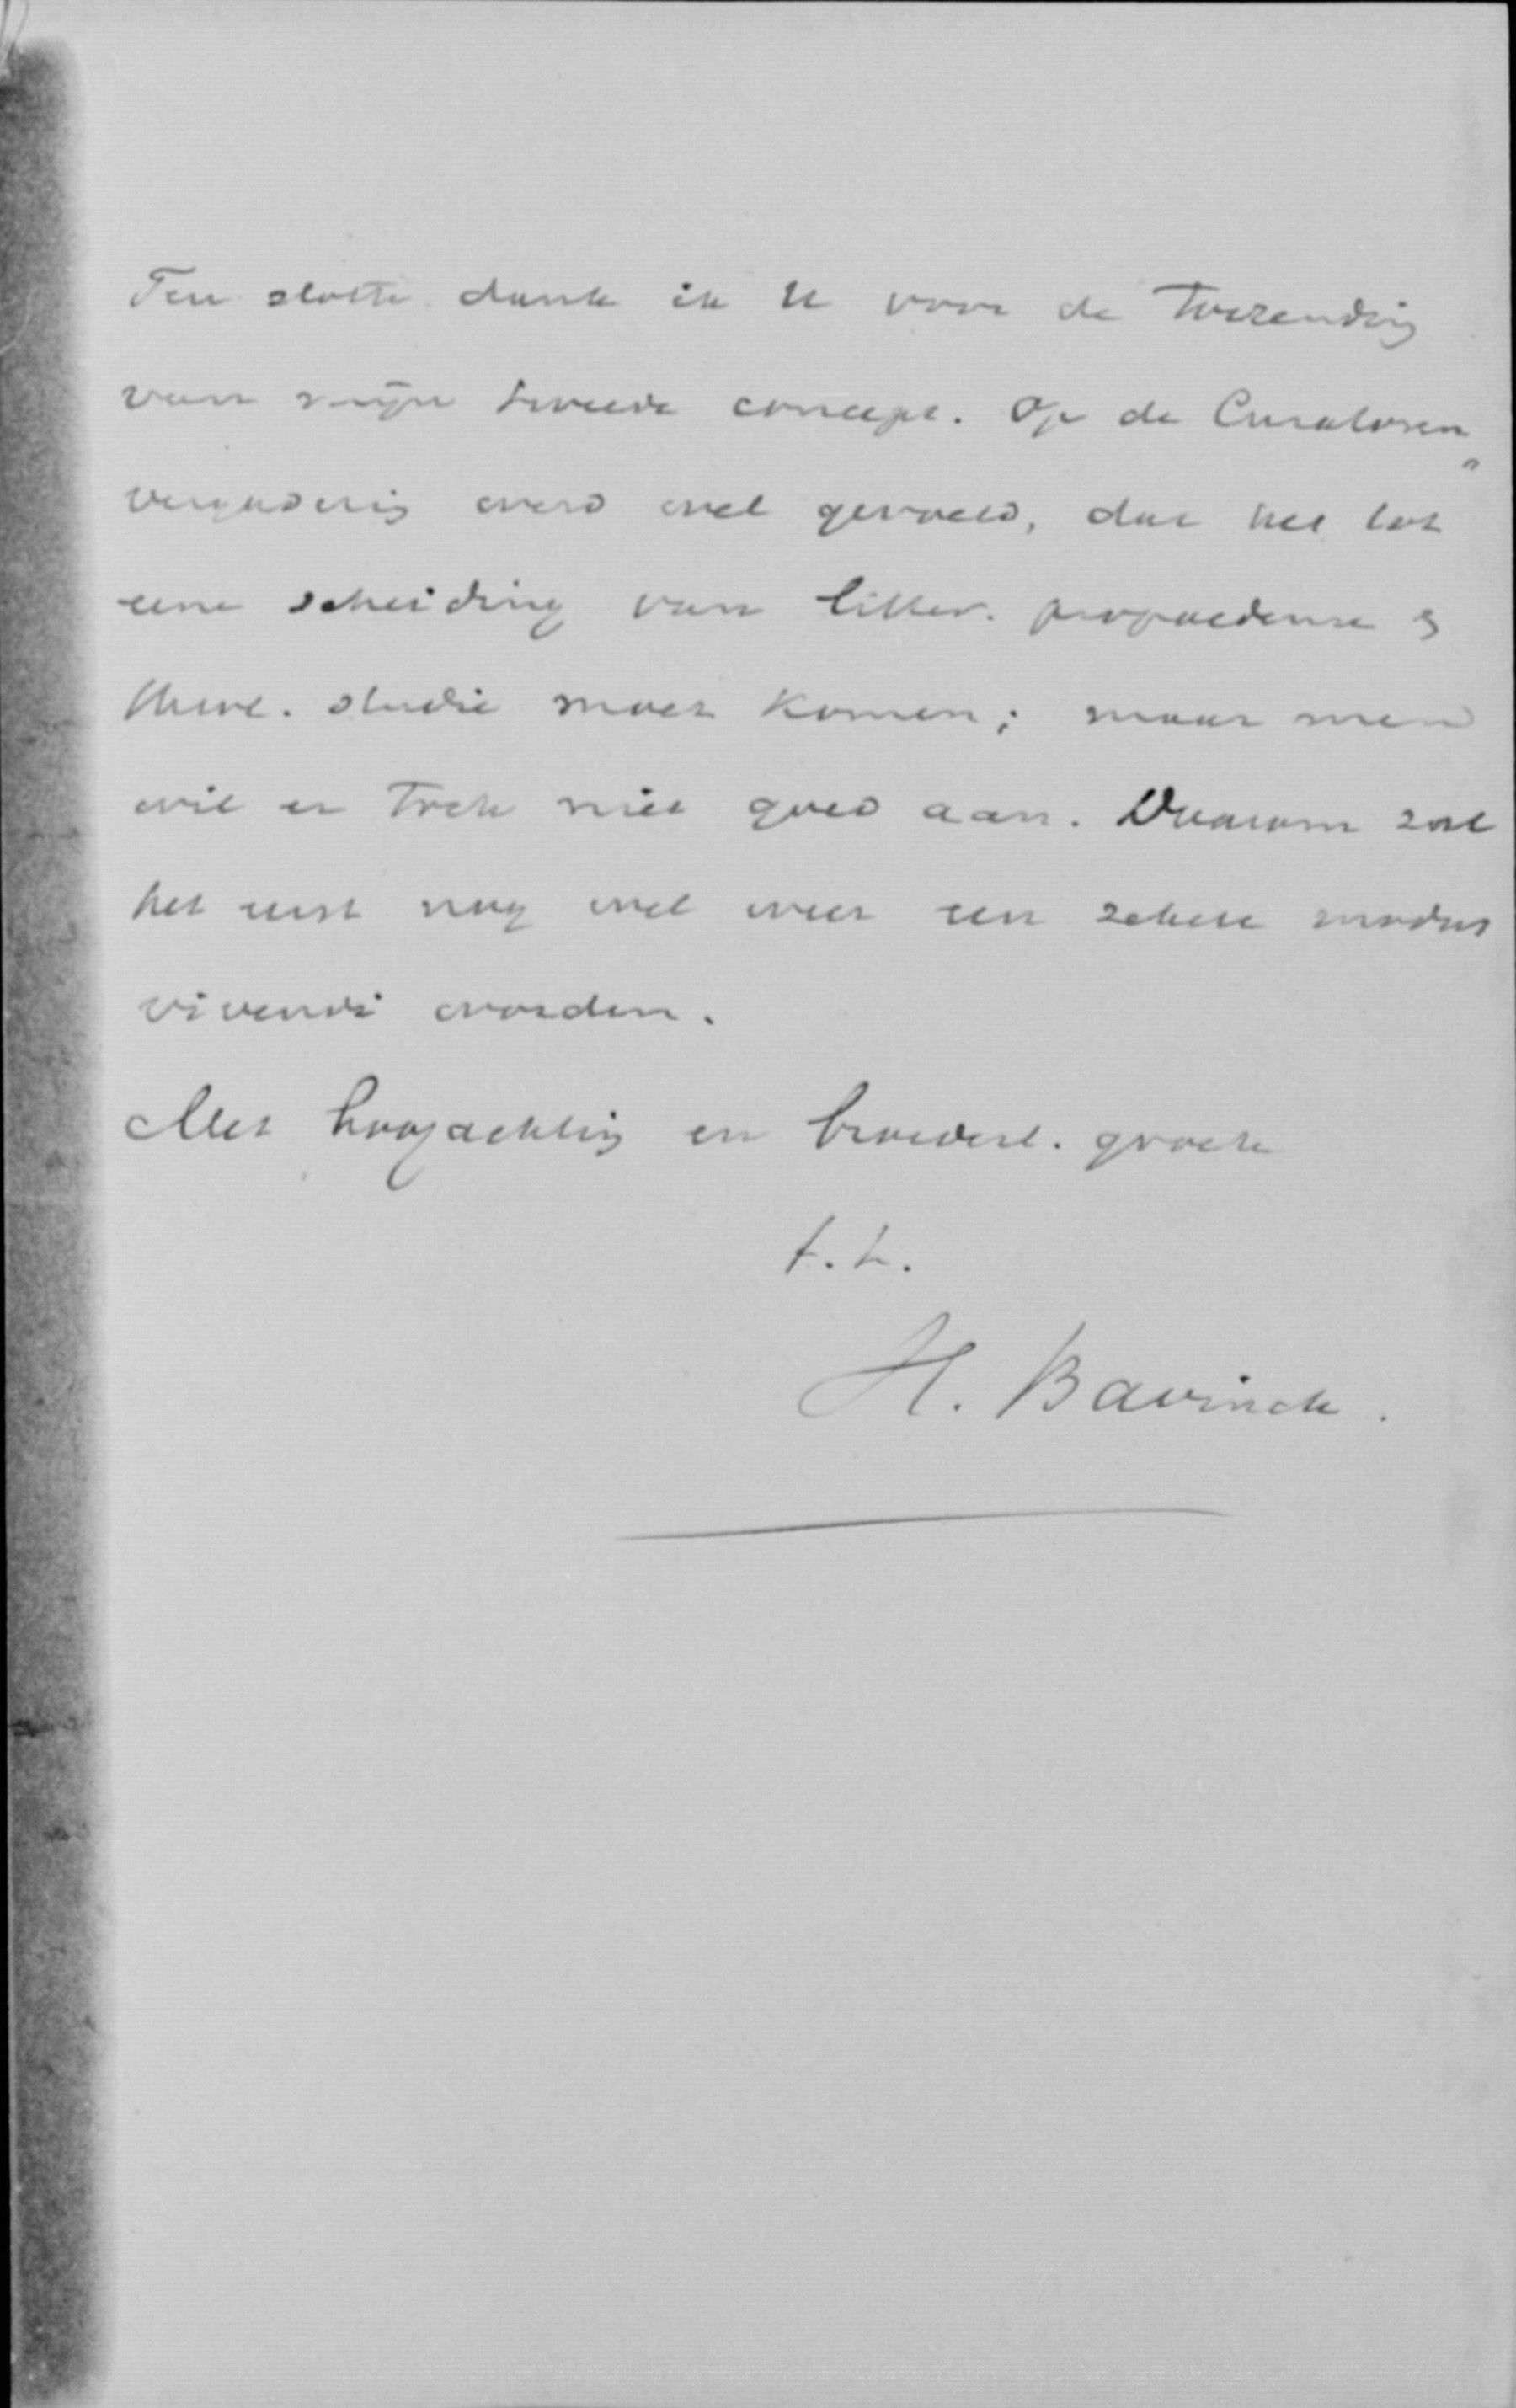 Ten slotte dank ik U voor de toezending
van mijn tweede concept. Op de Curatoren„
vergadering werd wel gevoeld, dat het tot
eene scheiding van litter. propaedeuse &
theol. studie moet komen; maar men
wil er toch niet goed aan. Daarom zal
het eerst nog wel weer een zekere modus
vivendi worden.
Met hoogachting en broederl. groete
t.t.
H. Bavinck.